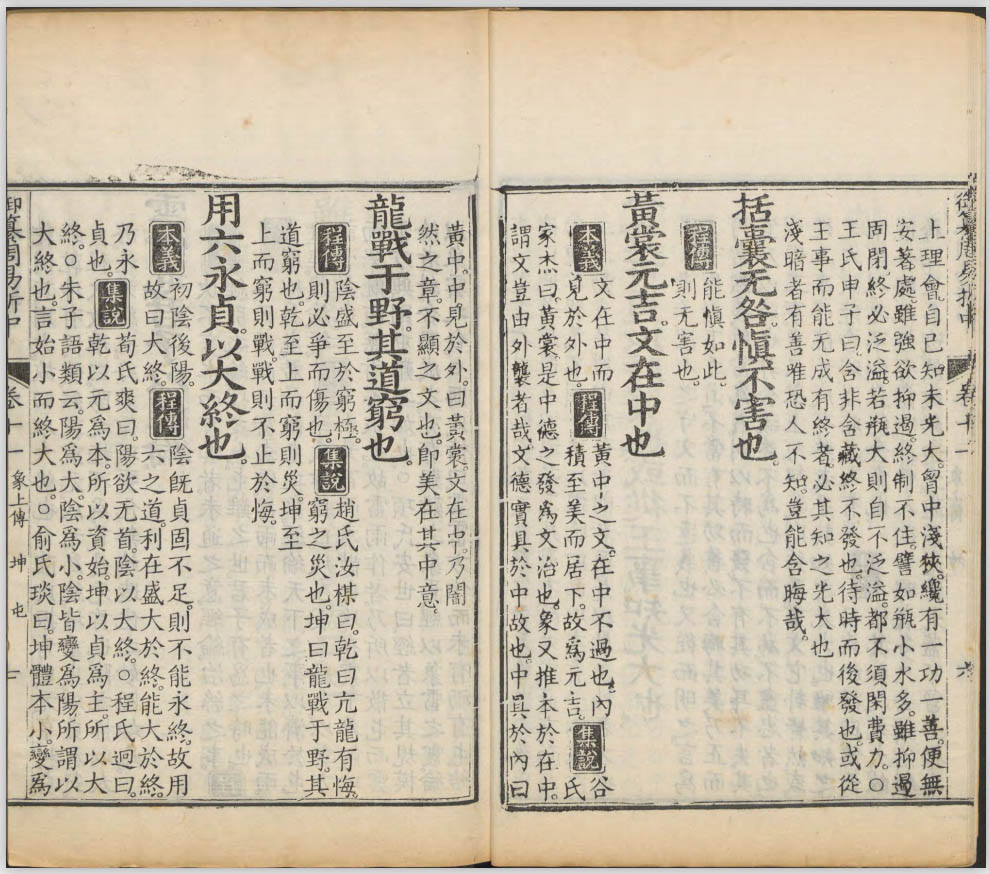 上理會自已知未光大胷中淺狹纔有一功一善便無
安著處雖強欲抑遏終制不住譬如瓶小水多雖抑遏
固閉終必泛溢若瓶大則自不泛溢都不須閑費力○
王氏申子曰含非含藏終不發也待時而後發也或從
王事而能无成有終者必其知之光大也
淺暗者有善唯恐人不知豈能含晦哉
括囊无咎愼不害也
程傳
能愼如此
則无害也
黃裳元吉文在中也
本義
文在中而
見於外也
程傳
黃中之文在中不過也內
積至美而居下故爲元吉
集說
谷
氏
家杰曰黃裳是中德之發爲文治也象又推本於在中
謂文豈由外襲者哉文德實具於中故也中具於內曰
御纂周易折中
卷十一
黃中中見於外曰黃裳文在中乃闇
然之章不顯之文也卽美在其中意
龍戰于野其道窮也
程傳
陰盛至於窮極
則必爭而傷也
集說
趙氏汝楳曰乾曰亢龍有悔
窮之災也坤曰龍戰于野其
道窮也乾至上而窮則災坤至
上而窮則戰戰則不止於悔
用六永貞以大終也
本義
初陰後陽
故曰大終
程傳
陰旣貞固不足則不能永終故用
六之道利在盛大於終能大於終
乃永
貞也
集說
荀氏爽曰陽欲无首陰以大終○程氏迥曰
乾以元爲本所以資始坤以貞爲主所以大
終○朱子語類云陽爲大陰爲小陰皆變爲陽所謂以
大終也言始小而終大也○俞氏琰曰坤體本小變爲
御纂周易折中
卷十一
象上傳
坤
屯